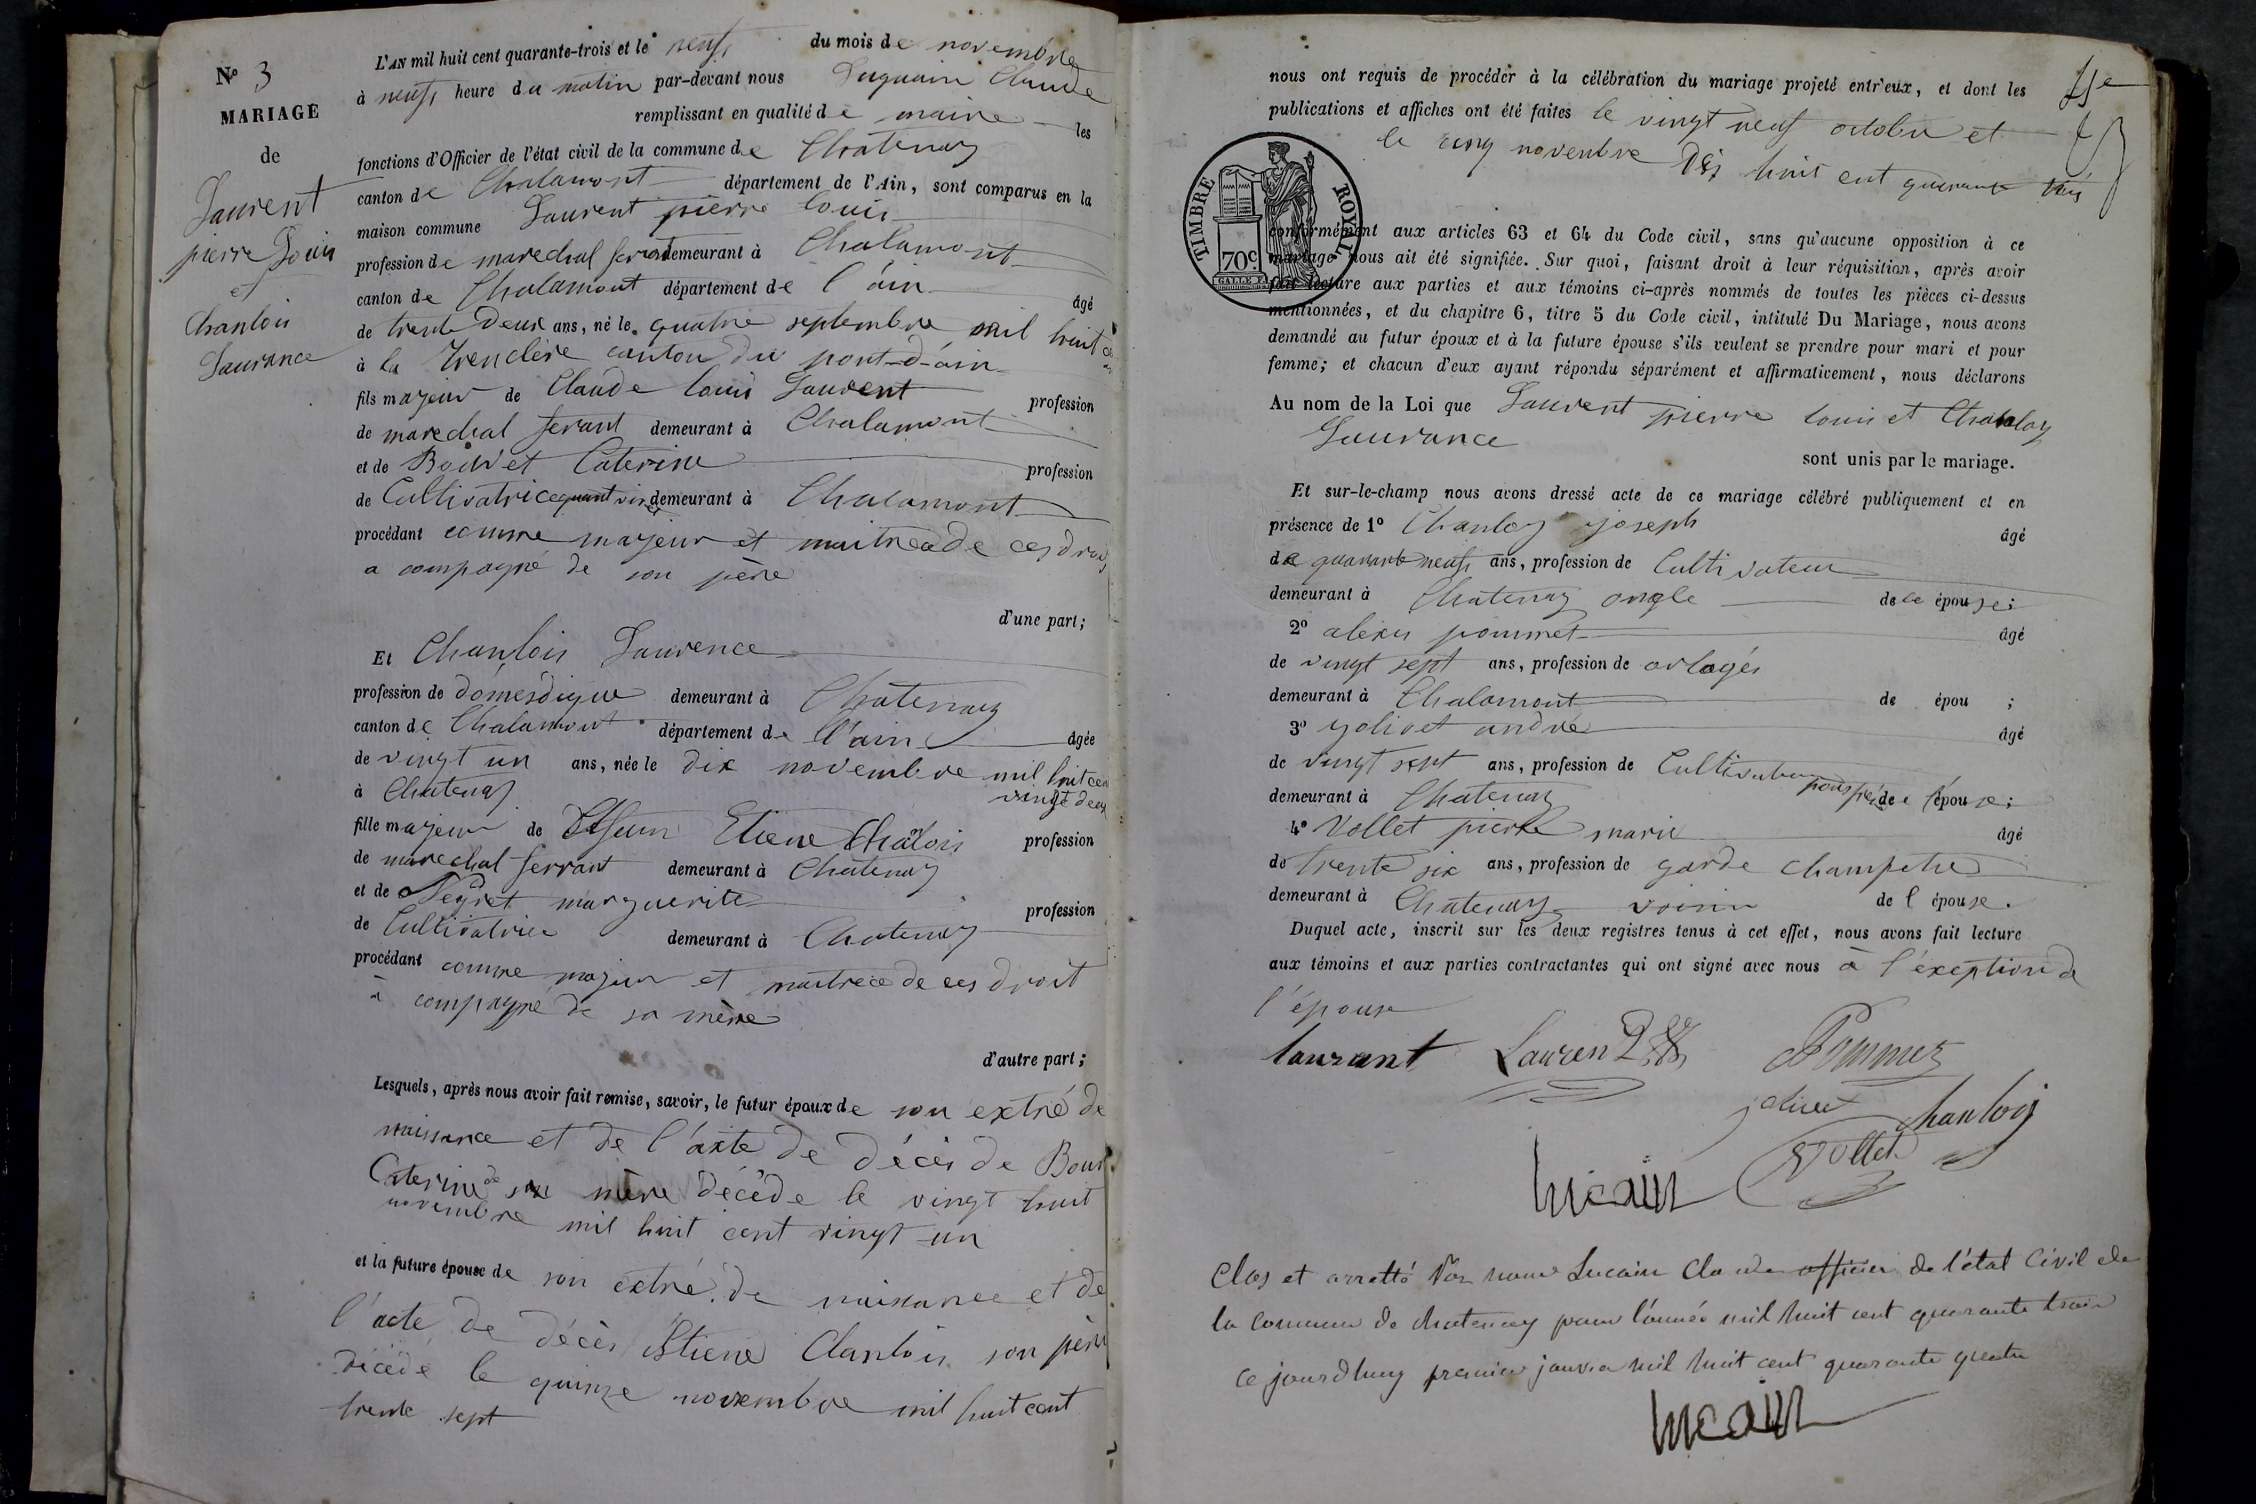 N° 3
MARIAGE
de
Laurent
pierre Louis
et
Chanlois
Laurance
L'AN mil huit cent quarante-trois et le neufs du mois de novembre
à neufs heure du matin par-devant nous Claude
remplissant en qualité de maire les
fonctions d'Officier de l'état civil de la commune de Chatenay
canton de Chalamont département de l'Ain, sont comparus en la
maison commune Laurent pierre louis
profession de marechal ferant demeurant à Chalamont
canton de Chalamont département de l'ain âgé
de trente deux ans, né le quatrie septembre mil huit
à la Trenclère canton du pont-d-ain
fils majeur de Claude louis Laurent profession
de marechal ferant demeurant à Chalamont
et de Caterine profession
de Cultivatrice demeurant à Chalamont
procédant comme majeur et maitre de ces droits
a compagné de son père
d'une part;
Et Chanlois Laurence
profession de domesdique demeurant à Chatenay
canton de Chalamont département de l'ain âgée
de vingt un ans, née le dix novembre mil huit cen
à Chatenay vingt deux
fille majeur de Etiene Chalois profession
de marechal ferrant demeurant à Chatenay
et de Negret marguerite profession
de Cultivatrice demeurant à Chatenay
procédant comme majeur et maitrece de ces droit
a compagné de sa mère
d'autre part;
Lesquels, après nous avoir fait remise, savoir, le futur époux de son extré de
naissance et de l'axte de décès de
Caterine sa mère décède le vingt huit
novembre mil huit cent vingt un
et la future épouse de son extré de naissance et de
l'acte de décès Etiene Chanlois son père
décédé le quinze novembre mil huit cent
trente sept
nous ont requis de procéder à la célébration du mariage projeté entr'eux, et dont les
publications et affiches ont été faites le vingt neuf octobre et
le cinq novembre dix huit cent quarante trois
TIMBRE ROYAL
70c
conformément aux articles 63 et 64 du Code civil, sans qu'aucune opposition à ce
mariage nous ait été signifiée. Sur quoi, faisant droit à leur réquisition, après avoir
fait lecture aux parties et aux témoins ci-après nommés de toutes les pièces ci-dessus
mentionnées, et du chapitre 6, titre 5 du Code civil, intitulé Du Mariage, nous avons
demandé au futur époux et à la future épouse s'ils veulent se prendre pour mari et pour
femme; et chacun d'eux ayant répondu séparément et affirmativement, nous déclarons
Au nom de la Loi que Laurent pierre louis et Chanloy
Laurance
sont unis par le mariage.
Et sur-le-champ nous avons dressé acte de ce mariage célébré publiquement et en
présence de 1° Chanloy joseph âgé
de quarante neufs ans, profession de Cultivateur
demeurant à Chatenay ongle de le épouse;
2° alexis pommet âgé
de vingt sept ans, profession de orlagés
demeurant à Chalamont de épou ;
3° yolivet andré âgé
de vingt sept ans, profession de Cultivateur
demeurant à Chatenay de l'épouse;
4° Vollet pierre marie âgé
de trente six ans, profession de garde champetre
demeurant à Chatenay voisin de l épouse.
Duquel acte, inscrit sur les deux registres tenus à cet effet, nous avons fait lecture
aux témoins et aux parties contractantes qui ont signé avec nous à l'exeption de
l'épouse
laurant Lauren Pommez
jolivet Chanloy
Vollet
lucain
Clos et arretté Par nous Lucain Claude officier de l'état Civil de
la commune de chatenay pour l'année mil huit cent quarante trois
ce jourdhuy premier janvier mil huit cent quarante quatre
lucain